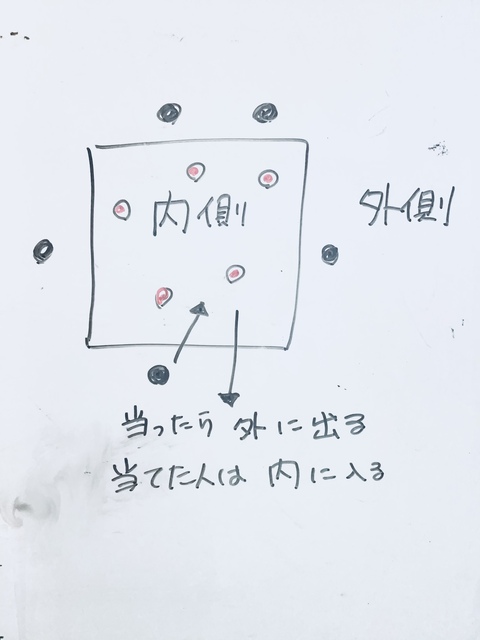 内側
外側
当ったら 外に出る
当てた人は 内に入る